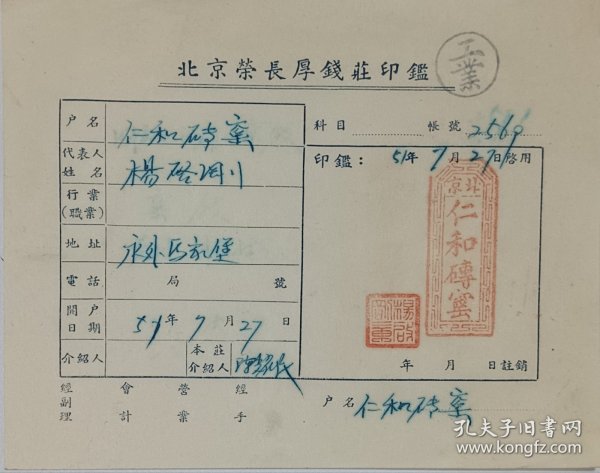 北京榮長厚錢莊印鑑
工業
户名 仁和砖窯
科目 帳號 2569
代表人姓名 楊啓
印鑑： 51年7月27日啓用
行業(職業)
地址 永外馬家堡
電話 局 號
開户日期 51年7月27日
介紹人 本莊介紹人
北京
仁和磚窰
楊啟
年 月 日註銷
經副理 會計 營業 經手
户名 仁和砖窯
孔夫子旧书网
kongfz.com